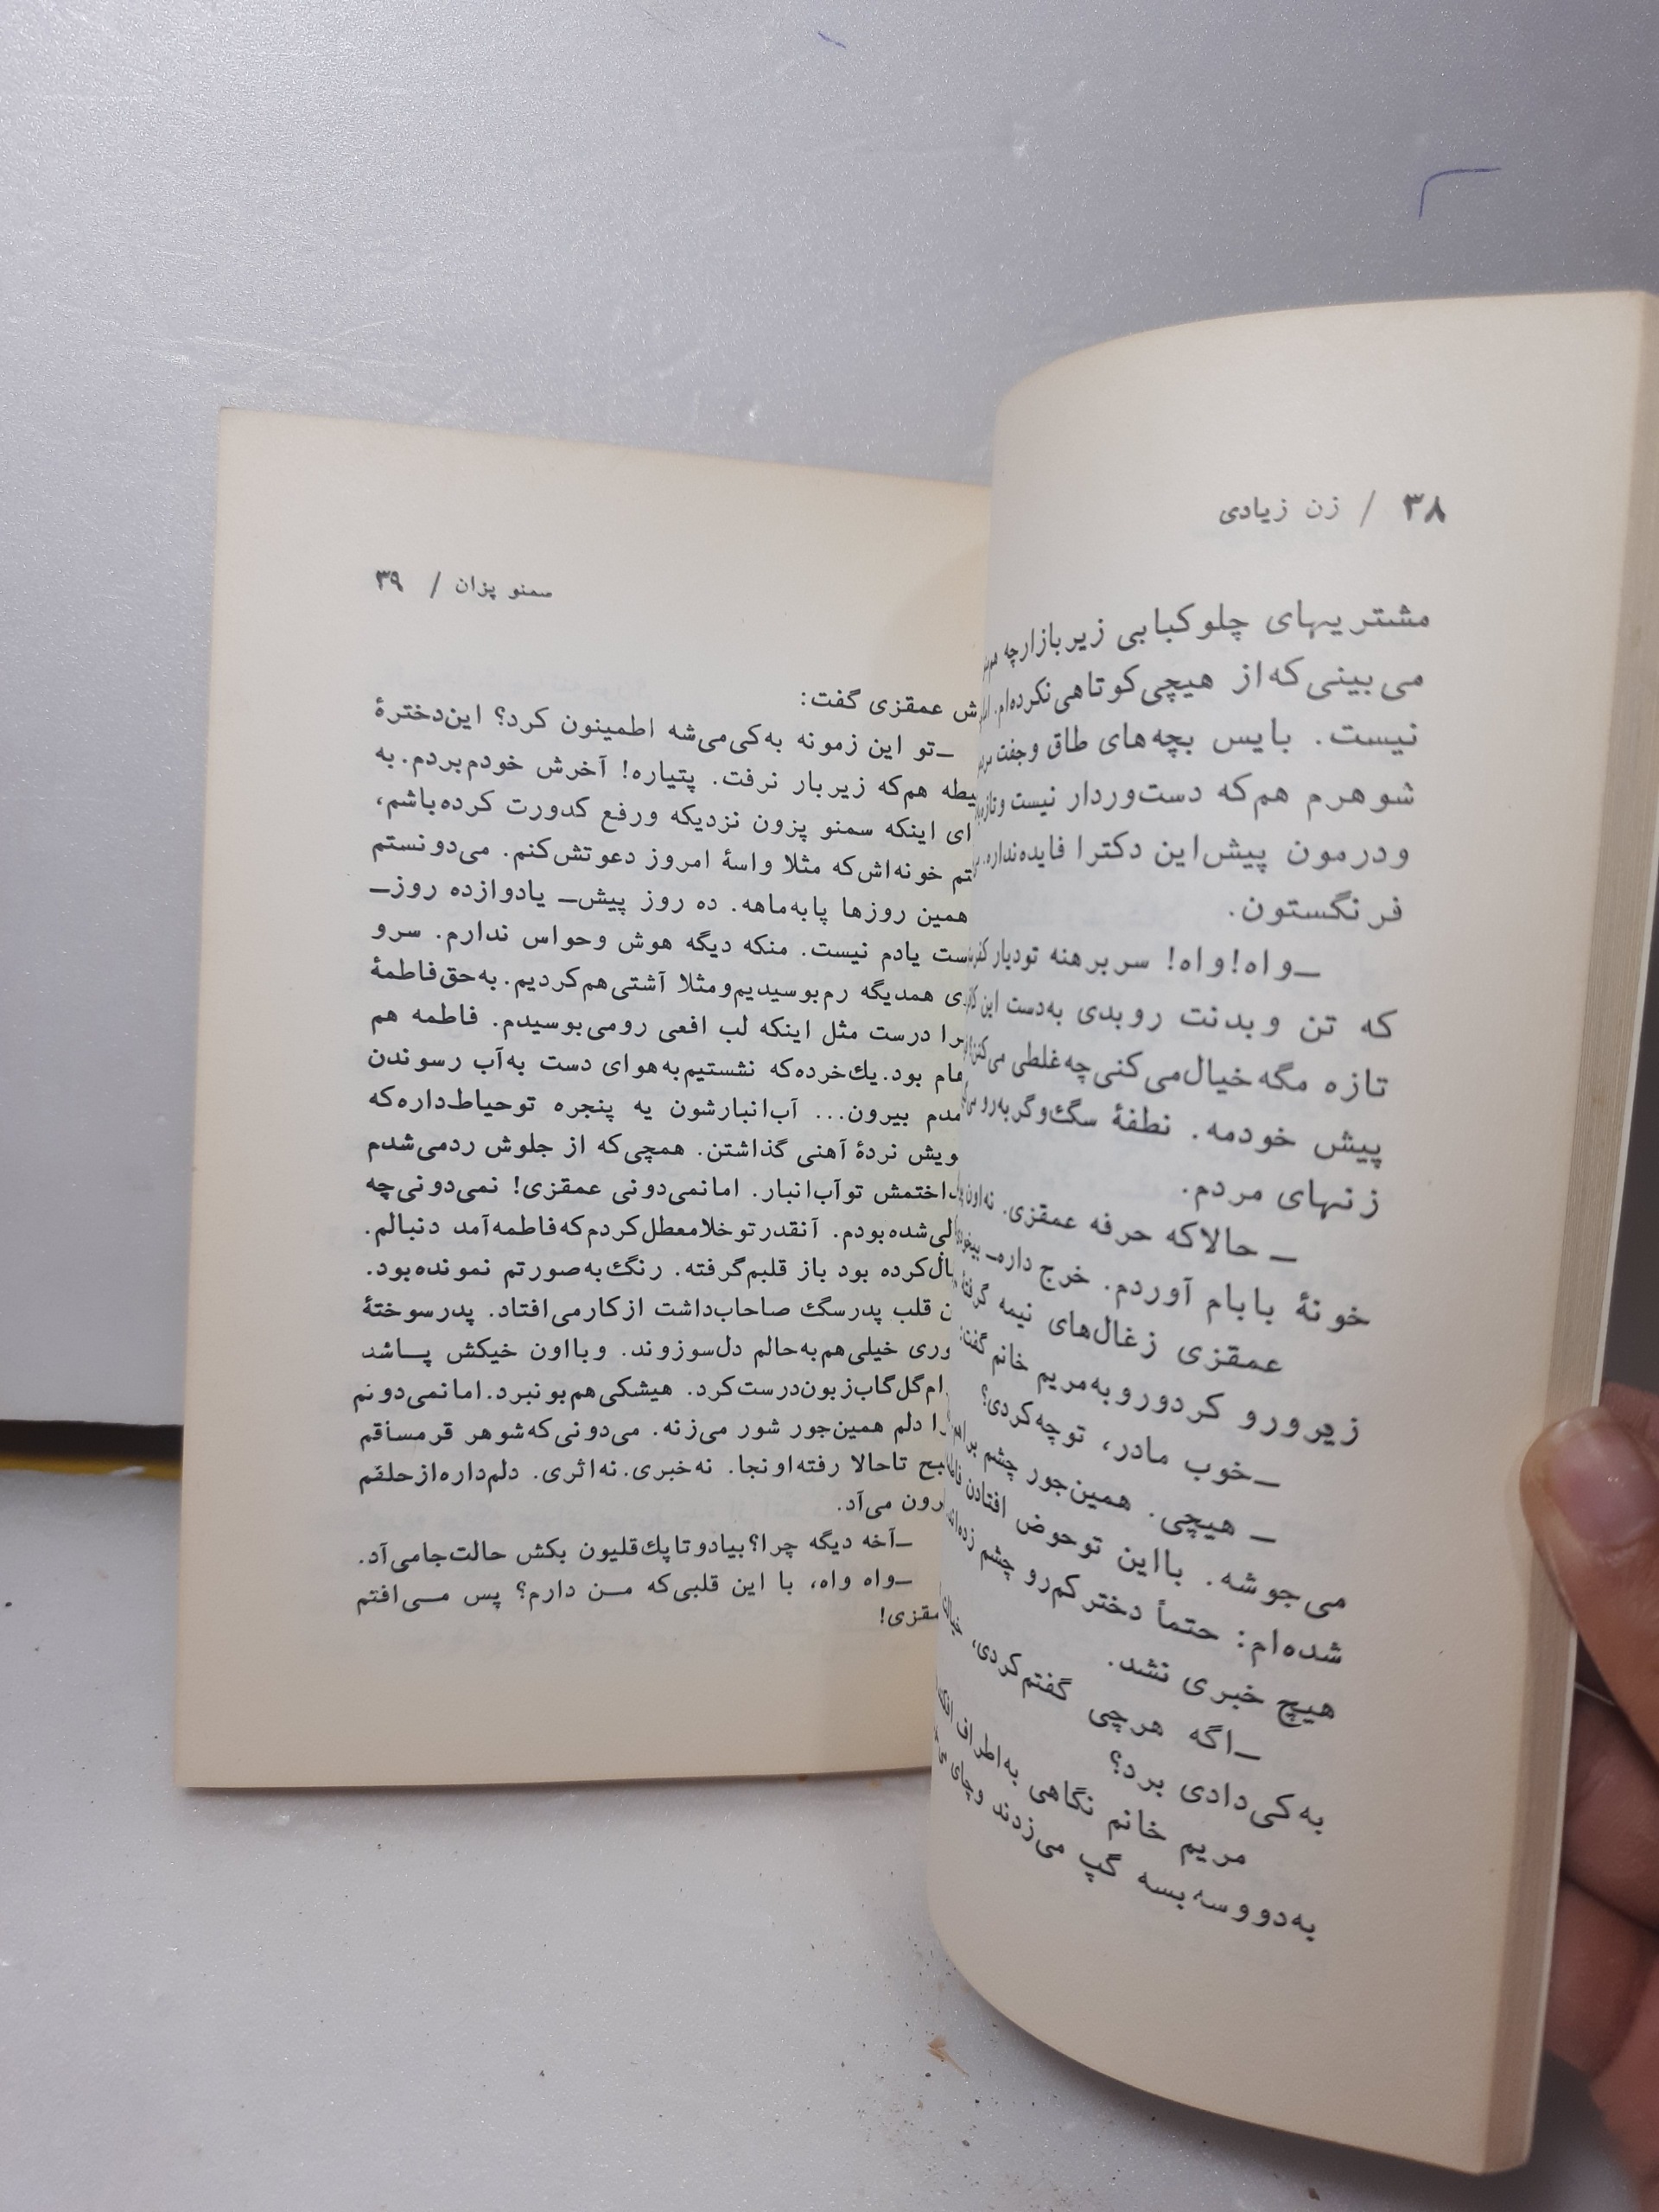 ۳۸ / زن زیادی
مشتریهای چلوکبابی زیربازارچه هم
می‌بینی‌که‌از هیچی‌کوتاهی‌نکرده‌ام.
نیست. بایس بچه‌های طاق وجفت
شوهرم هم‌که دست‌وردار نیست
ودرمون پیش‌این دکترا فایده‌نداره.
فرنگستون.
ــواه!واه! سربرهنه تودیار
که تن وبدنت روبدی به‌دست این
تازه مگه‌خیال‌می‌کنی‌چه‌غلطی می‌کنن؟
پیش خودمه. نطفهٔ سگ‌وگربه‌رو
زنهای مردم.
ــ حالاکه حرفه عمقزی. نه‌اون
خونهٔ بابام آوردم. خرج داره
عمقزی زغال‌های نیمه گرفتهٔ
زیرورو کردوروبه‌مریم خانم گفت:
ــخوب مادر، توچه‌کردی؟
ــ هیچی. همین‌جور چشم براهم
می‌جوشه. بااین توحوض افتادن
شده‌ام: حتماً دخترکم‌رو چشم زده‌اند
هیچ خبری نشد.
ــاگه هرچی گفتم‌کردی،
به‌کی‌دادی برد؟
مریم خانم نگاهی به‌اطراف
به‌دووسه‌بسه گپ می‌زدند وچای
سمنو پزان / ۳۹
عمقزی گفت:
ــتو این زمونه به‌کی‌می‌شه اطمینون کرد؟ این‌دخترهٔ
هم‌که زیربار نرفت. پتیاره! آخرش خودم‌بردم. به
ای اینکه سمنو پزون نزدیکه ورفع کدورت کرده‌باشم،
خونه‌اش‌که مثلا واسهٔ امروز دعوتش‌کنم. می‌دونستم
همین روزها پابه‌ماهه. ده روز پیش‌ــ یادوازده روزــ
یادم نیست. منکه دیگه هوش وحواس ندارم. سرو
همدیگه رم‌بوسیدیم‌ومثلا آشتی‌هم‌کردیم. به‌حق‌فاطمهٔ
درست مثل اینکه لب افعی رومی‌بوسیدم. فاطمه هم
بود. یك‌خرده‌که نشستیم‌به‌هوای دست به‌آب رسوندن
بیرون... آب‌انبارشون یه پنجره توحیاط‌داره‌که
نردهٔ آهنی گذاشتن. همچی‌که از جلوش ردمی‌شدم
توآب‌انبار. امانمی‌دونی عمقزی! نمی‌دونی‌چه
شده‌بودم. آنقدرتوخلامعطل‌کردم‌که‌فاطمه‌آمد دنبالم.
کرده بود باز قلبم‌گرفته. رنگ‌به‌صورتم نمونده‌بود.
قلب پدرسگ صاحاب‌داشت ازکارمی‌افتاد. پدرسوختهٔ
خیلی‌هم‌به‌حالم دل‌سوزوند. وبااون خیکش پـاشد
گل‌گاب‌زبون‌درست‌کرد. هیشکی‌هم‌بونبرد. امانمی‌دونم
دلم همین‌جور شور می‌زنه. می‌دونی‌که‌شوهر قرمساقم
تاحالا رفته‌اونجا. نه‌خبری. نه‌اثری. دلم‌داره‌ازحلقم
می‌آد.
ــآخه دیگه چرا؟بیادوتاپك‌قلیون بکش حالت‌جامی‌آد.
ــواه واه، با این قلبی‌که مـن دارم؟ پس مـی‌افتم